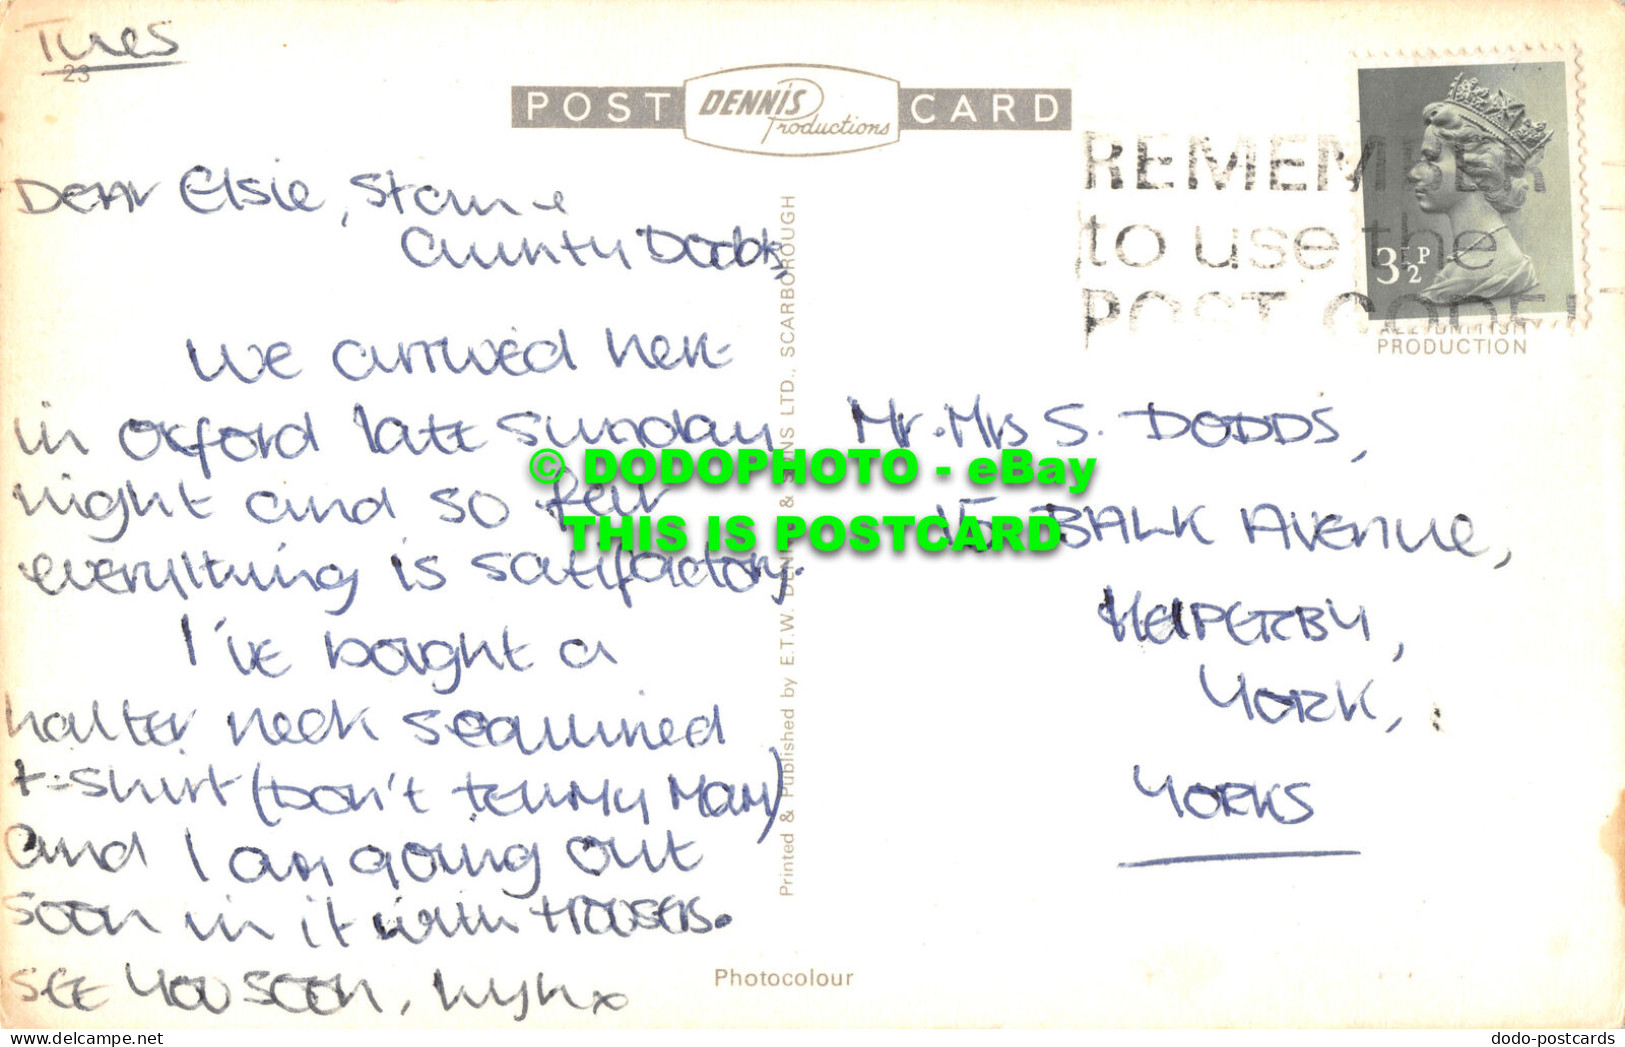 Tues
23
POST DENNIS Productions CARD
REMEMBER
to use the
POST CODE!
3½P
PRODUCTION
Dear Elsie, Stan &
Aunty Dodds,
We arrived here
in Oxford late Sunday
night and so far
everything is satisfactory.
I've bought a
halter neck seamed
t-shirt (Don't tell my Mam)
and I am going out
soon in it with trousers.
SEE YOU SOON,
Mr. Mrs S. DODDS,
15 BALK Avenue,
HELPERBY,
YORK,
YORKS
Printed & Published by E.T.W. DENNIS & SONS LTD., SCARBOROUGH
Photocolour
© DODOPHOTO - eBay
THIS IS POSTCARD
dodo-postcards